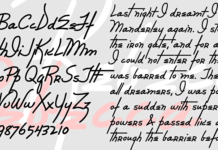 aBbCcDdE
IiJjKkLlMm
oPpQqRrSs
vWwXxYyZz
9876543210
Last night I dreamt I
Manderley again. I s
the iron gate, and for a
I could not enter for th
was barred to me. The
all dreamers, I was po
of a sudden with super
powers & passed like a
through the barrier befo